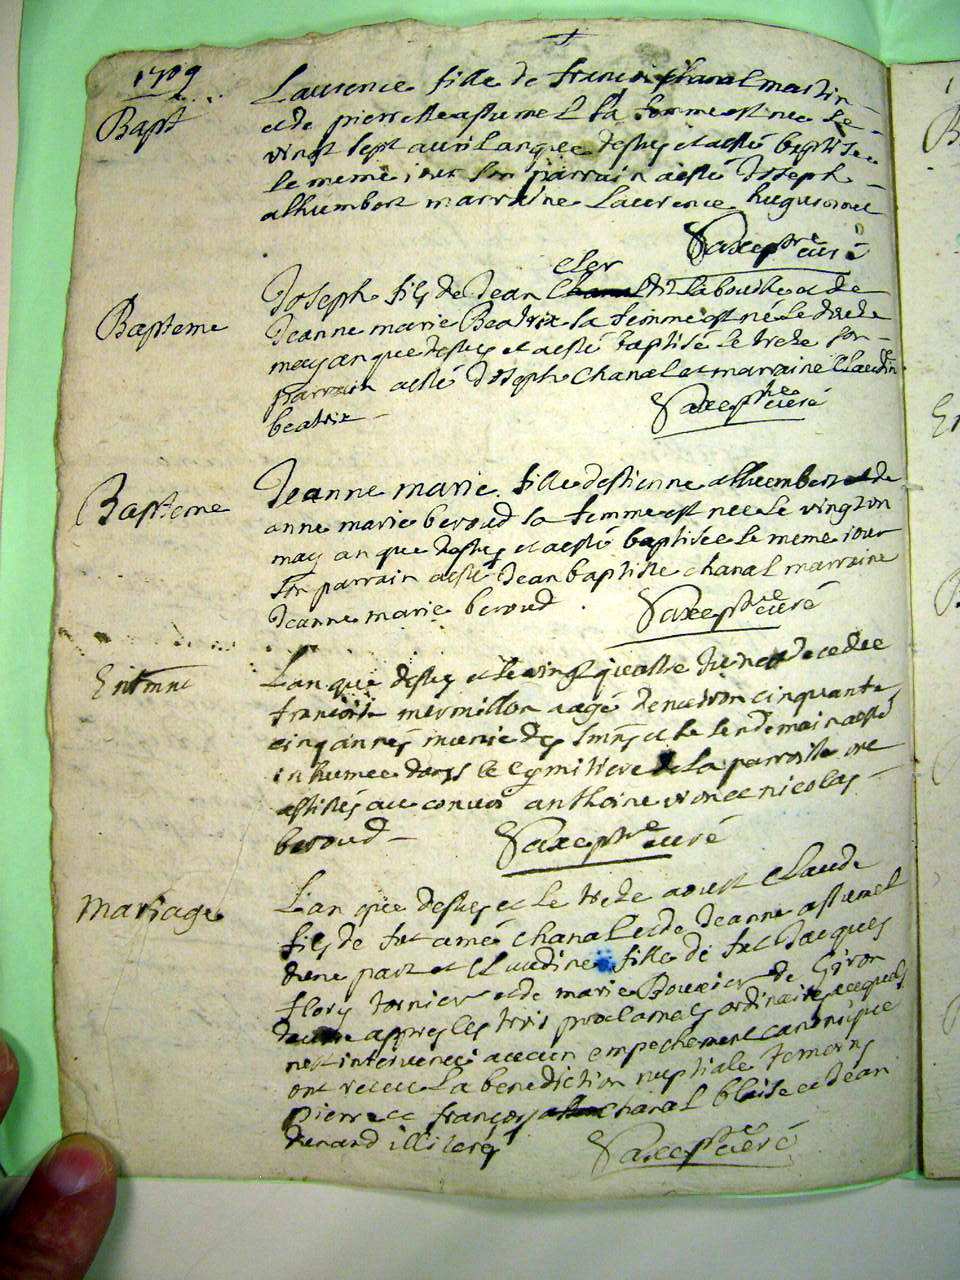 1709
Bapt
Laurence fille de francois chanal martin
et de pierrette assumel sa femme est nee le
vingt sept avril an que dessus et a esté baptisee
le meme iour son parrain a esté Joseph
alhumbert marraine Laurence hugueronet
Saxe ptre curé
Bapteme
Joseph fils de Jean cler dit labouttre et de
Jeanne marie Beatrix sa femme est né le doutze
may an que dessus et a esté baptisé le treize son
parrain a esté Joseph chanal et marraine Claudine
beatrix
Saxe ptre curé
Bapteme
Jeanne marie fille destienne alhumbert et de
anne marie beroud sa femme est nee le vingt un
may an que dessus et a esté baptisée le meme iour
son parrain a esté Jean baptiste chanal marraine
Jeanne marie beroud
Saxe ptre curé
Entmnt
L an que dessus et le vingt quattre Juin est decedee
francoise mermillon aagé denviron cinquante
cinq annes munie des smns et le lendemain a esté
inhumee dans le cymittiere de la parroisse ont
assistés au convoi anthoine et nicolas
beroud
Saxe ptre curé
Mariage
L an que dessus et le treize aoust Claude
fils de fut amé chanal et de Jeanne assumel
dune part et Claudine fille de fut Jacques
flory tornier et de marie Bouvier de Giron
dautre appres les trois proclames ordinaires auquels
nest intervenus aucun empechement canonique
ont receu la benediction nuptiale temoins
pierre et françois chanal blaise et Jean
durand illiterés
Saxe ptre curé